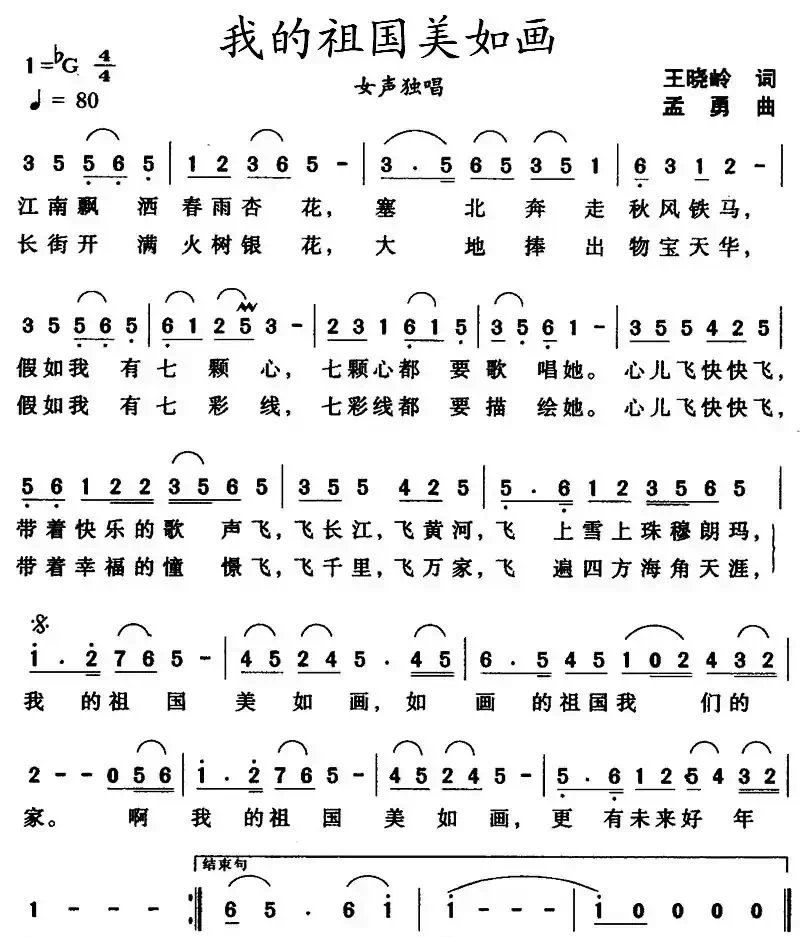 我的祖国美如画
1=♭G 4/4
女声独唱
王晓岭 词
♩= 80
孟 勇 曲
3 5 5 6 5 | 1 2 3 6 5 5 - | 3 . 5 6 5 3 5 1 | 6 3 1 2 - |
江南飘 洒春雨杏 花, 塞 北 奔 走秋风铁马,
长街开 满火树银 花, 大 地 捧 出物宝天华,
3 5 5 6 5 | 6 1 2 5 3 - | 2 3 1 6 1 5 | 3 5 6 1 - | 3 5 5 4 2 5 |
假如我 有七 颗 心, 七颗心都 要歌 唱她。心儿飞快快飞,
假如我 有七 彩 线, 七彩线都 要描 绘她。心儿飞快快飞,
5 6 1 2 2 3 5 6 5 | 3 5 5 4 2 5 | 5 . 6 1 2 3 5 6 5 |
带着快乐的歌 声飞,飞长江,飞黄河,飞 上雪上珠穆朗玛,
带着幸福的憧 憬飞,飞千里,飞万家,飞 遍四方海角天涯,
𝄋
1 . 2 7 6 5 - | 4 5 2 4 5 . 4 5 | 6 . 5 4 5 1 0 2 4 3 2 |
我 的祖 国 美 如 画,如 画 的祖国我 们的
2 - - 0 5 6 | 1 . 2 7 6 5 - | 4 5 2 4 5 - | 5 . 6 1 2 5 4 3 2 |
家。 啊 我 的祖 国 美 如 画, 更 有未来好 年
结束句
1 - - - :| 6 5 . 6 1 | 1 - - - | 1 0 0 0 0 |